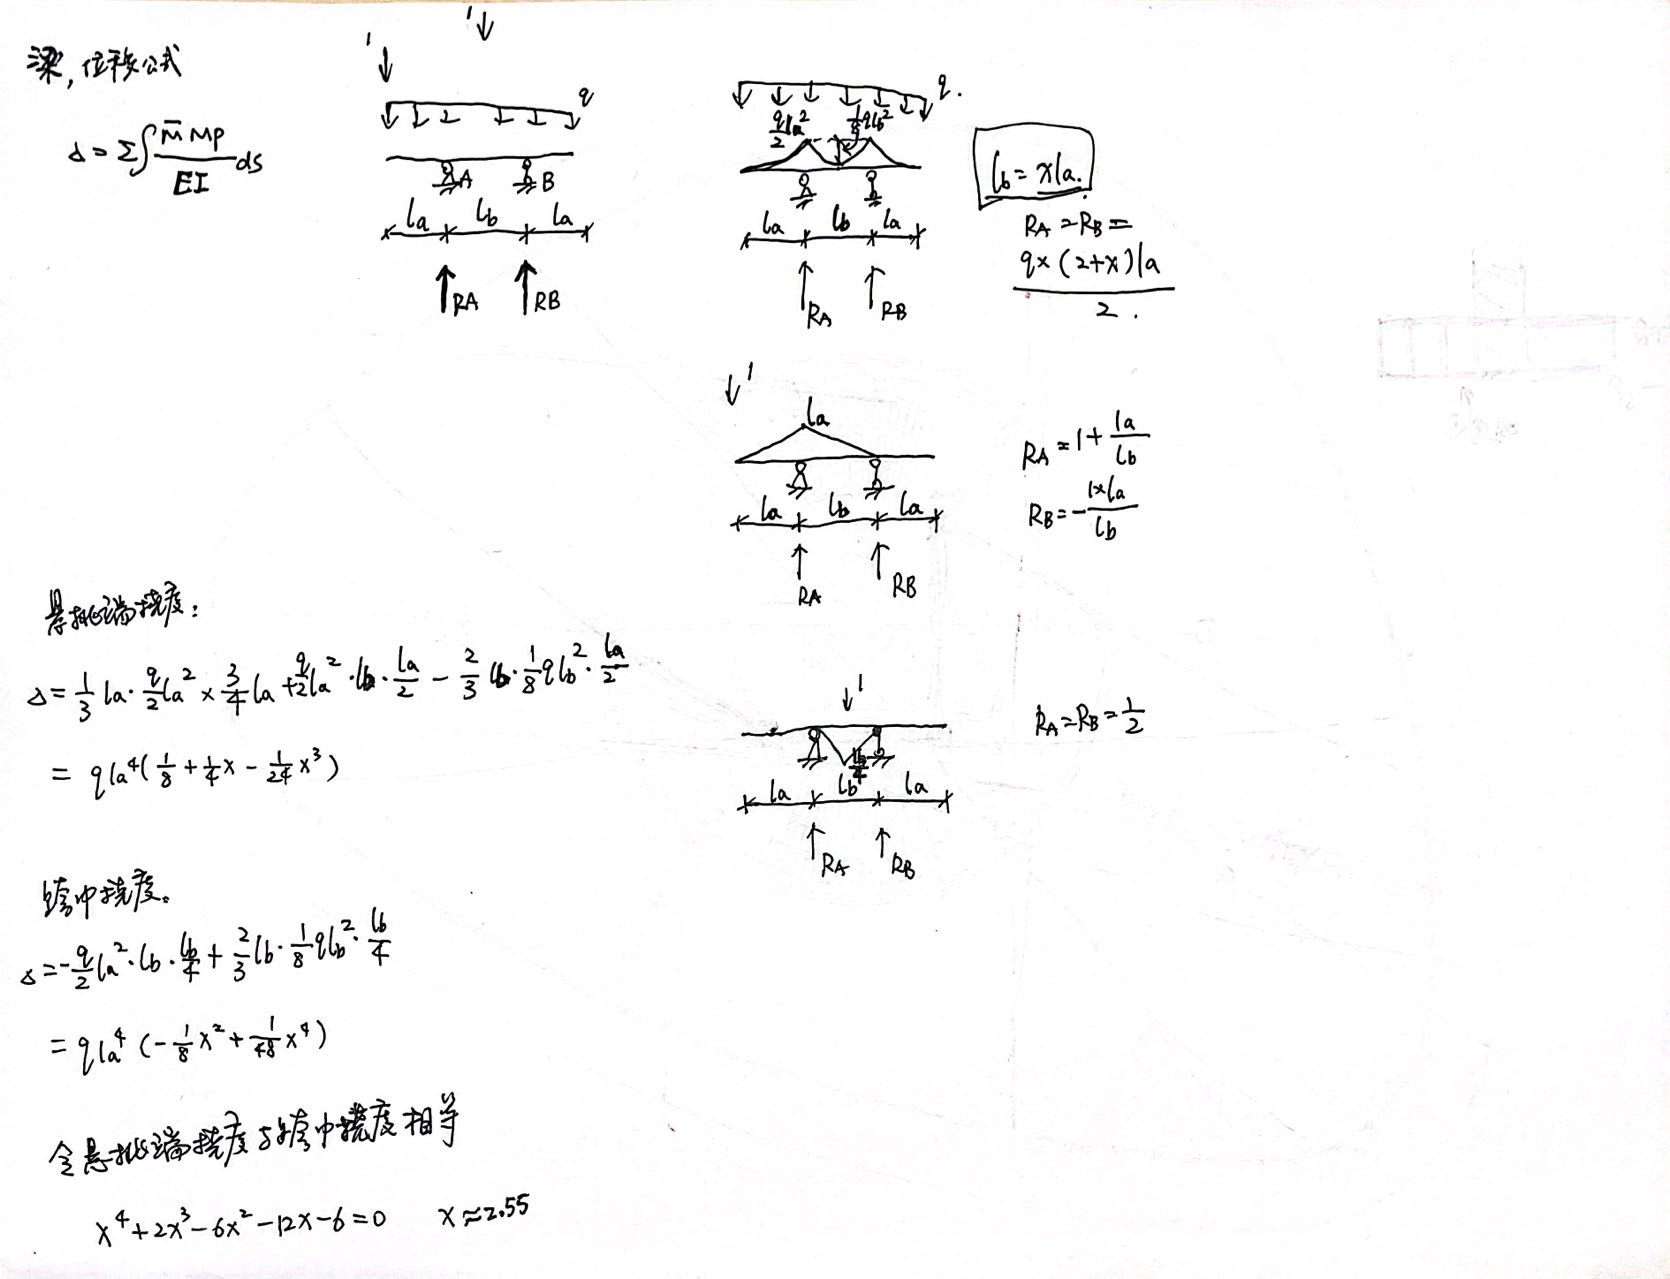 梁,位移公式
Δ=Σ∫M̄Mp/EI ds
1↓
1↓
q
A B
la lb la
RA RB
q.
q/2 la² 1/8 qlb²
la lb la
RA RB
lb=xla.
RA=RB=
q×(2+x)la/2.
↓1
la
la lb la
RA RB
RA=1+la/lb
RB=-1×la/lb
悬挑端挠度:
Δ=1/3 la·q/2 la²×3/4 la+q/2 la²·lb·la/2-2/3 lb·1/8 qlb²·la/2
=qla⁴(1/8+1/4x-1/24x³)
↓1
lb/4
la lb la
RA RB
RA=RB=1/2
跨中挠度。
Δ=-q/2 la²·lb·lb/4+2/3 lb·1/8 qlb²·lb/4
=qla⁴(-1/8x²+1/48x⁴)
令悬挑端挠度与跨中挠度相等
x⁴+2x³-6x²-12x-6=0 x≈2.55